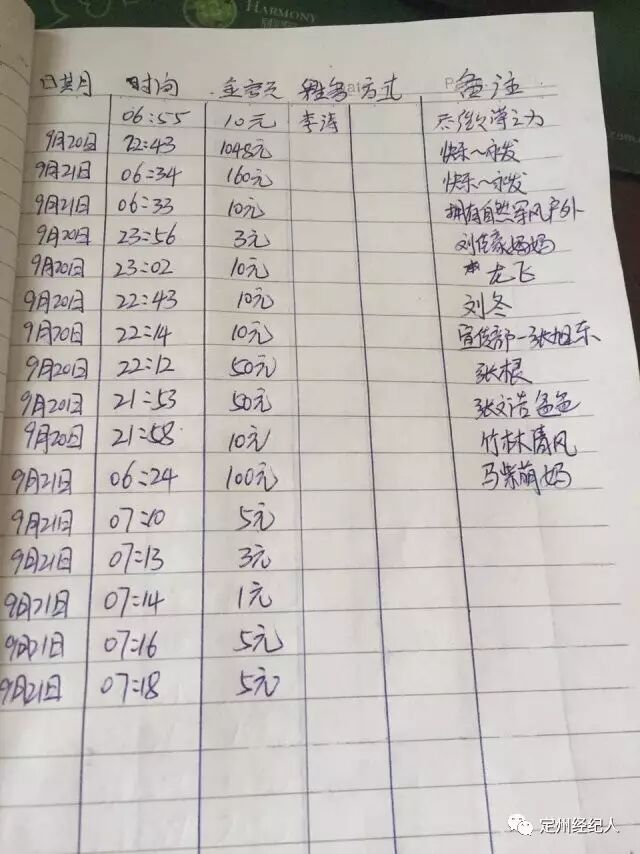 HARMONY
日期 时间 金额 姓名 方式 备注
06:55 10元 李涛
9月20日 22:43 1048元 快乐~永发
9月21日 06:34 160元 快乐~永发
9月21日 06:33 10元 拥有自然军风户外
9月20日 23:56 3元 刘佳豪妈妈
9月20日 23:02 10元 龙飞
9月20日 22:43 10元 刘冬
9月20日 22:14 10元 宣传部-张旭东
9月20日 22:12 50元 张根
9月20日 21:53 50元 张文浩爸爸
9月20日 21:58 10元 竹林清风
9月21日 06:24 100元 马紫萌妈
9月21日 07:10 5元
9月21日 07:13 3元
9月21日 07:14 1元
9月21日 07:16 5元
9月21日 07:18 5元
定州经纪人